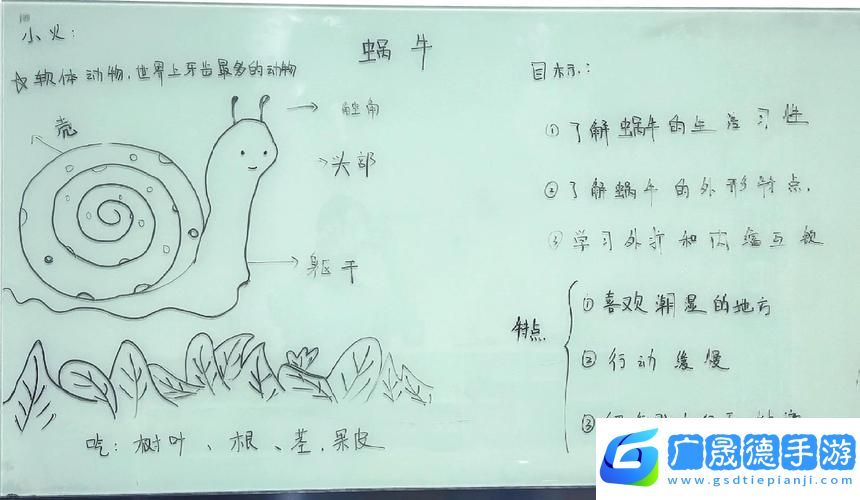 小火：
蜗牛
☆软体动物，世界上牙齿最多的动物
壳
触角
头部
躯干
吃：树叶、根、茎、果皮
目标：
①了解蜗牛的生活习性
②了解蜗牛的外形特点.
③学习外折和内缩互
特点
①喜欢潮湿的地方
②行动缓慢
③
广晟德手游
www.gsdtiepianji.com